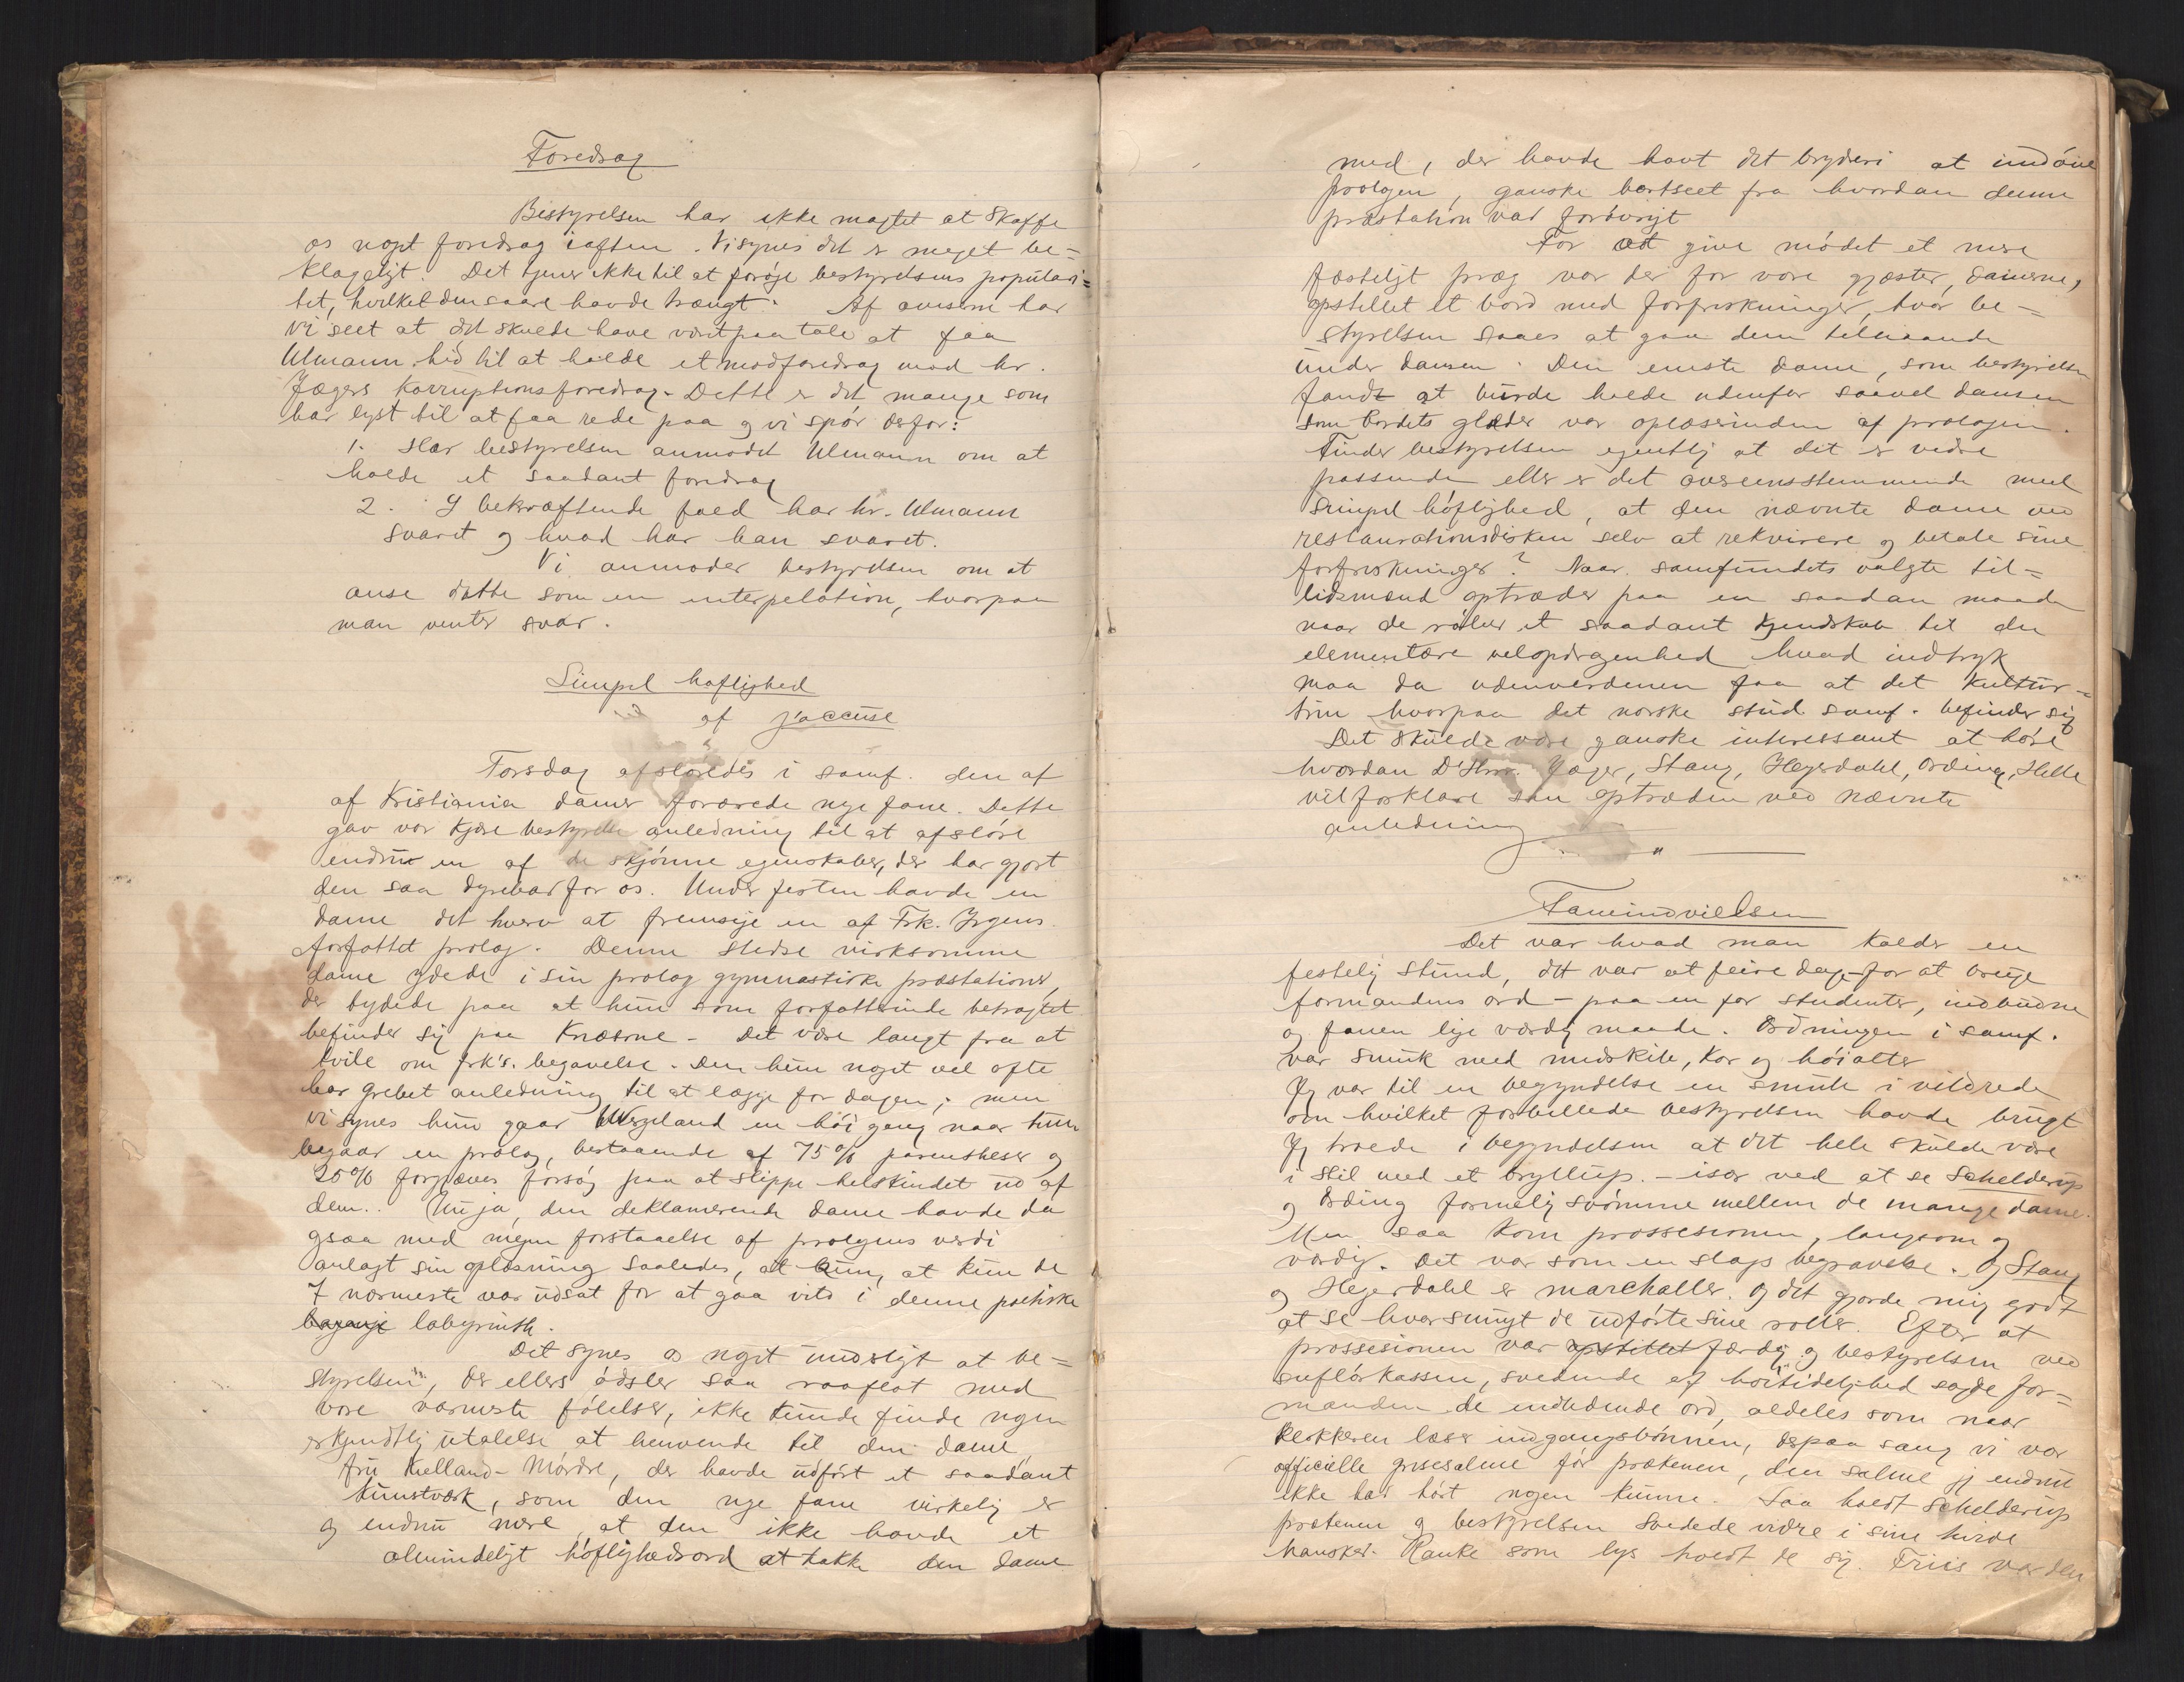 Foredrag
Bestyrelsen har ikke magtet at skaffe
os noget foredrag iaften. Vi synes det er meget be=
klageligt. Det tjener ikke til at forøje bestyrelsens populari=
tet, hvilket den saare havde trængt. Af aviserne har
vi seet at det skulde have været paa tale at faa
Ulmann hid til at holde et modforedrag mod hr.
Jægers Korruptionsforedrag. Dette er det mange som
har lyst til at faa rede paa og vi spør derfor:
1. Har bestyrelsen anmodet Ulmann om at
holde et saadant foredrag
2. I bekræftende fald har hr. Ulmann
svaret og hvad har han svaret.
Vi anmoder bestyrelsen om at
anse dette som en interpelation, hvorpaa
man venter svar.
Simpel høflighed
af j'accuse
Torsdag afsløredes i samf. den af
af Kristiania damer forærede nye fane. Dette
gav vor kjære bestyrelse anledning til at afsløre
endnu en af de skjønne egenskaber, der har gjort
den saa dyrebar for os. Under festen havde en
dame det hverv at fremsige en af Frk. Irgens
forfattet prolog. Denne stedse virksomme
dame ydede i sin prolog gymnastiske præstationer,
der tydede paa at hun som forfatterinde betragtet
befinder sig paa knæerne. Det være langt fra at
tvile om frk's. begavelse. Den hun noget vel ofte
har grebet anledning til at lægge for dagen; men
vi synes hun gaar Wergeland en høi gang naar hun
begaar en prolog, bestaaende af 75% parentheser og
25% forgjæves forsøg paa at slippe helskindet ud af
dem.. Nu ja, den deklamerende dame havde da
ogsaa med megen forstaaelse af prologens værdi
anlagt sin oplæsning saaledes, at kun, at kun de
7 nærmeste var udsat for at gaa vild i denne poetiske
bagage labyrinth.
Det synes os noget underligt at be=
styrelsen, der ellers ødsler saa raaflot med
vore varmeste følelser, ikke kunde finde nogen
erkjendtlig utalelse at henvende til den dame,
fru Kielland-Mørdre, der havde udført et saadant
kunstværk, som den nye fane virkelig er
og endnu mere, at den ikke havde et
almindeligt høflighedsord at takke den dame
med, der havde havt det bryderi at indøve
prologen, ganske bortseet fra hvordan denne
præstation var forøvrigt
For at give mødet et mere
festeligt præg var der for vore gjæster, damerne,
opstillet et bord med forfriskninger, hvor be=
styrelsen saaes at gaa dem tilhaande
under dansen. Den eneste dame, som bestyrelsen
fandt at burde holde udenfor saavel dansen
som bordets glæder var oplæserinden af prologen.
Finder bestyrelsen egentlig at det er videre
passende eller er det overensstemmende med
simpel høflighed, at den nævnte dame ved
restaurationsdisken selv at rekvirere og betale sine
forfriskninger? Naar samfundets valgte til=
lidsmænd optræder paa en saadan maade
naar de røber et saadant kjendskab til den
elementære velopdragenhed hvad indtryk
maa da udenverdenen faa at det kultur=
trin hvorpaa det norske stud. samf. befinder sig
Det skulde være ganske interessant at høre
hvordan D'Hrr. Jæger, Stang, Heyerdahl, Ording, Helle
vil forklare sin optræden ved nævnte
anledning
Faneindvielsen
Det var hvad man kalder en
festelig stund, det var at feire dage – for at bruge
formandens ord – paa en for studenter, indbudne
og fanen lige værdig maade. Ordningen i samf.
var smuk med midskib, kor og høialter
Jeg var til en begyndelse en smule i vildrede
om hvilket forbillede bestyrelsen havde brugt
Jeg troede i begyndelsen at det hele skulde være
i stil med et bryllup. – især ved at se Schelderup
og Ording formelig svømme mellem de mange damer.
Men saa kom prossesionen, langsom og
værdig. Det var som en slags begravelse. Og Stang
og Heyerdahl er marchaller. Og det gjorde mig godt
at se hvor smugt de udførte sine roller. Efter at
prossisionen var opstillet færdig og bestyrelsen ved
suflørkassen, svedende af høitidelighed sagde for=
manden de indledende ord, aldeles som naar
klokkeren læser indgangsbønnen, derpaa sang vi vor
officielle grisesalme før prækenen, den salme jeg endnu
ikke har hørt nogen kunne. Saa holdt Schelderup
prækenen og bestyrelsen svedede videre i sine hvide
hansker. Ranke som lys holdt de sig. Friis var den